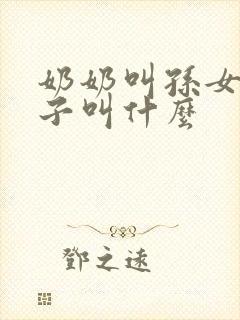 奶奶叫孫女
子叫什麼
鄧之遠